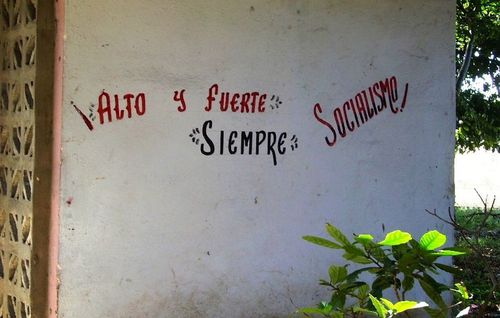 ¡Alto y Fuerte
Siempre
Socialismo!